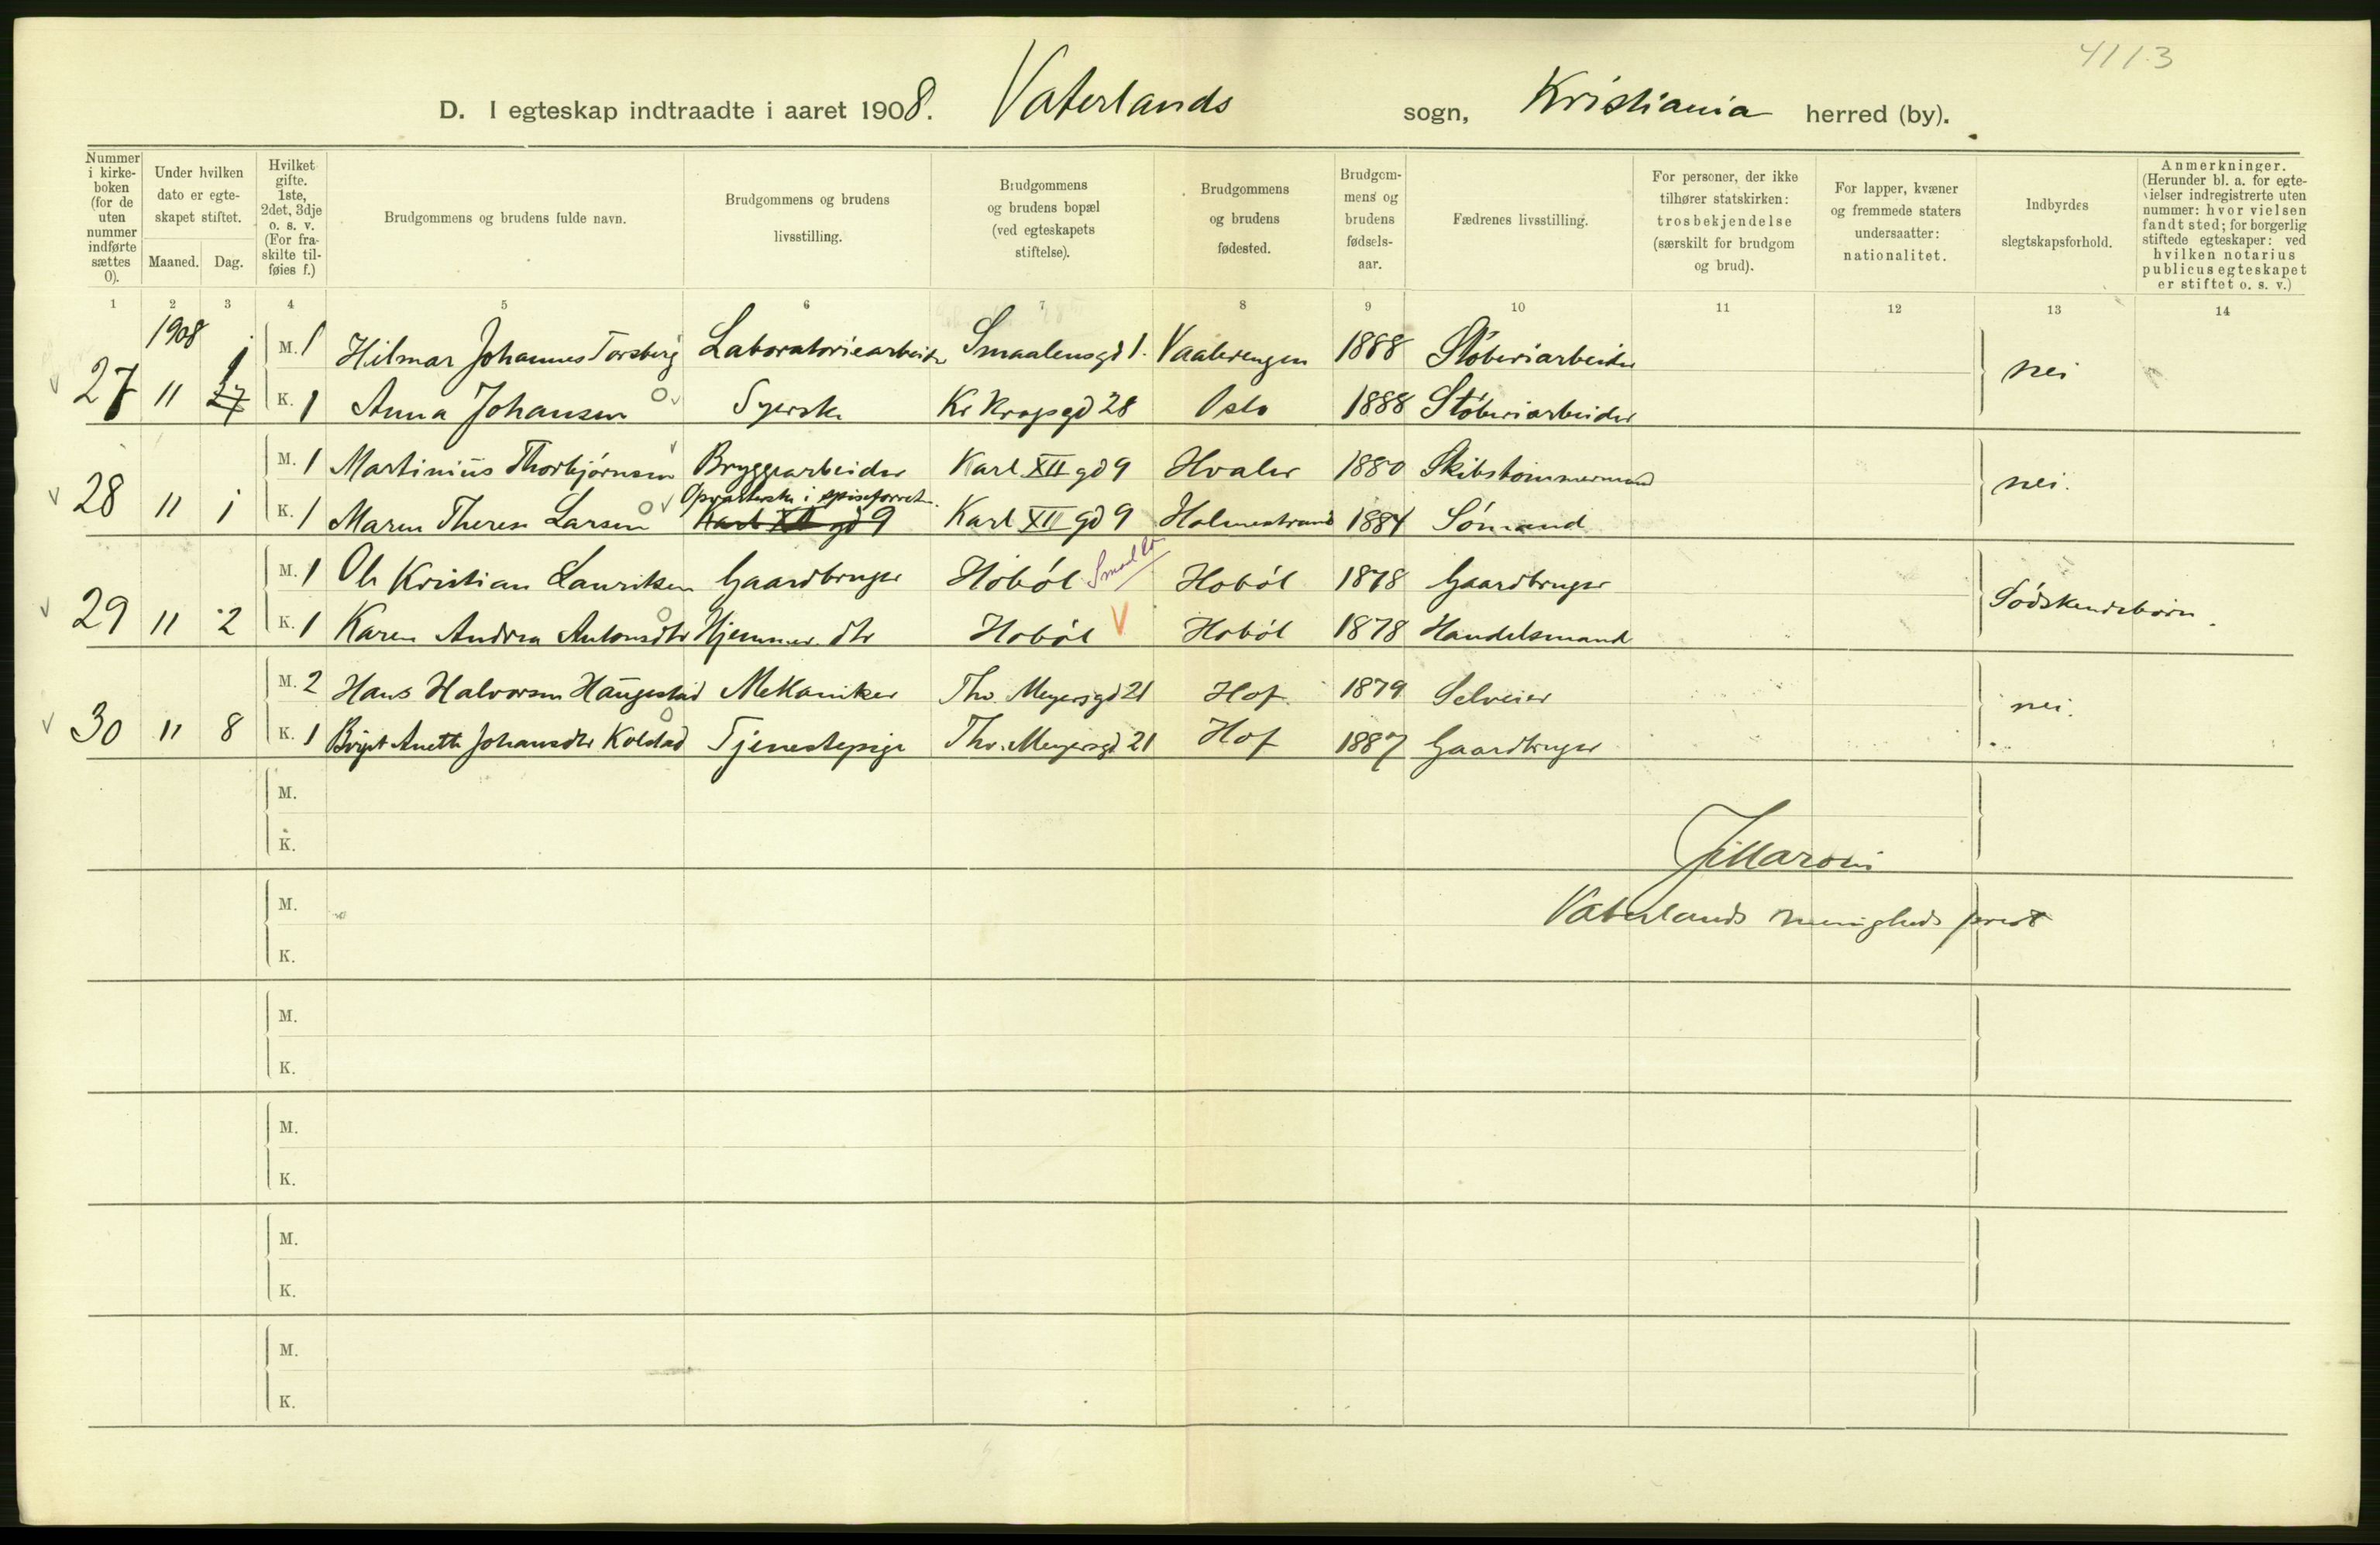 4113
D. I egteskap indtraadte i aaret 1908. Vaterlands sogn, Kristiania herred (by).
Nummer i kirke- boken (for de uten nummer indførte sættes 0).
Under hvilken dato er egte- skapet stiftet.
Maaned. Dag.
Hvilket gifte. 1ste, 2det, 3dje o. s. v. (For fra- skilte til- føies f.)
Brudgommens og brudens fulde navn.
Brudgommens og brudens livsstilling.
Brudgommens og brudens bopæl (ved egteskapets stiftelse).
Brudgommens og brudens fødested.
Brudgom- mens og brudens fødsels- aar.
Fædrenes livsstilling.
For personer, der ikke tilhører statskirken: trosbekjendelse (særskilt for brudgom og brud).
For lapper, kvæner og fremmede staters undersaatter: nationalitet.
Indbyrdes slegtskapsforhold.
Anmerkninger. (Herunder bl. a. for egte- vielser indregistrerte uten nummer: hvor vielsen fandt sted; for borgerlig stiftede egteskaper: ved hvilken notarius publicus egteskapet er stiftet o. s. v.)
1 2 3 4 5 6 7 8 9 10 11 12 13 14
1908
M. 1 Hilmar Johannes Torsberg Laboratoriearbeider Smaalensgd 1. Vaalerengen 1888 Støberiarbeider
27 11 27 1 nei
K. 1 Anna Johansen Syerske Kr Krogsgd 28 Oslo 1888 Støberiarbeider
M. 1 Martinius Thorbjørnsen Bryggearbeider Karl XII gd 9 Hvaler 1880 Skibstømmermand
28 11 1 nei.
Opvarterske i spiseforretn.
K. 1 Maren Therese Larsen Karl XII gd 9 Karl XII gd 9 Holmestrand 1884 Sømand
M. 1 Ole Kristian Lauritsen Gaardbruger Hobøl Smaalen Hobøl 1878 Gaardbruger
29 11 2 Sødskendebørn.
K. 1 Karen Andrea Antonsdtr Hjemmev. dtr Hobøl Hobøl 1878 Handelsmand
M. 2 Hans Halvorsen Haugestad Mekaniker Thv. Meyersgd 21 Hof 1879 Selveier
30 11 8 nei.
K. 1 Birgit Anette Johansdtr Kolstad Tjenestepige Thv. Meyersgd 21 Hof 1887 Gaardbruger
M.
K.
Vaterlands menigheds prest
M.
K.
M.
K.
M.
K.
M.
K.
M.
K.